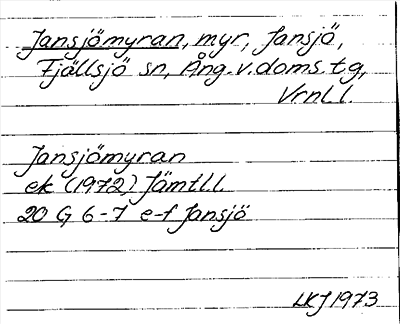 Jansjömyran, myr, Jansjö,
Fjällsjö sn, Ång. v. doms. tg,
Vrnl. l.
Jansjömyran
ek (1972) Jämtl l
20 G 6-7 e-f Jansjö
LKJ 1973